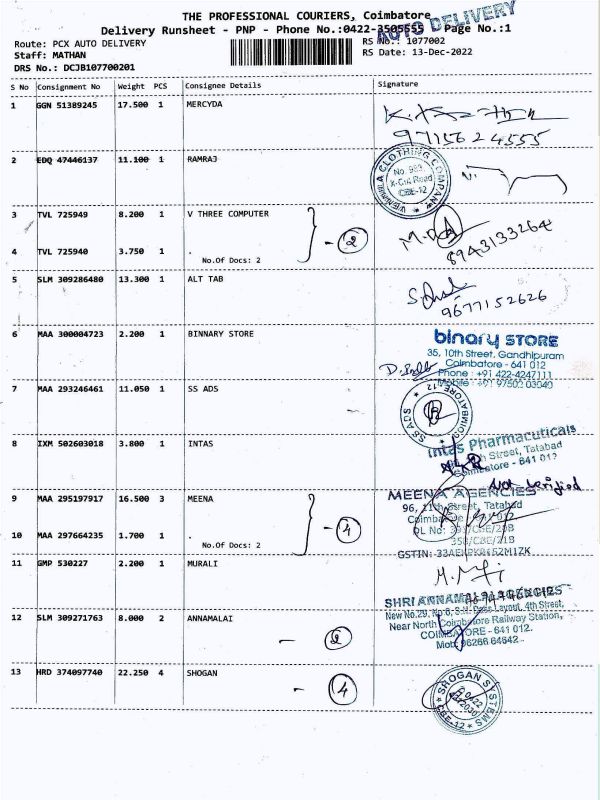 THE PROFESSIONAL COURIERS, Coimbatore
AUTO DELIVERY
Delivery Runsheet - PNP - Phone No.:0422-3505555 Page No.:1
Route: PCX AUTO DELIVERY
RS No.: 1077002
Staff: MATHAN
RS Date: 13-Dec-2022
DRS No.: DCJB107700201
S No Consignment No Weight PCS Consignee Details Signature
1 GGN 51389245 17.500 1 MERCYDA
9715624555
2 EDQ 47446137 11.100 1 RAMRAJ
CLOTHING COMPANY
No. 983,
X-Cut Road
CBE-12
3 TVL 725949 8.200 1 V THREE COMPUTER
2
8943133264
4 TVL 725940 3.750 1 .
No.Of Docs: 2
5 SLM 309286480 13.300 1 ALT TAB
9677152626
6 MAA 300004723 2.200 1 BINNARY STORE
binary STORE
35, 10th Street, Gandhipuram
Coimbatore - 641 012
Phone : +91 422-4247111
Mobile : +91 97502 03040
7 MAA 293246461 11.050 1 SS ADS
SS ADS COIMBATORE 12
8 IXM 502603018 3.800 1 INTAS
Intas Pharmacuticals
Street, Tatabad
Coimbatore - 641 012
Not Verified
9 MAA 295197917 16.500 3 MEENA
MEENA AGENCIES
96, 11th Street, Tatabad
4
10 MAA 297664235 1.700 1 .
No.Of Docs: 2
11 GMP 530227 2.200 1 MURALI
12 SLM 309271763 8.000 2 ANNAMALAI
SHRI ANNAMALAI AGENCIES
Near North Coimbatore Railway Station,
COIMBATORE - 641 012.
13 HRD 374097740 22.250 4 SHOGAN
4
SHOGAN SYSTEMS
CBE-12